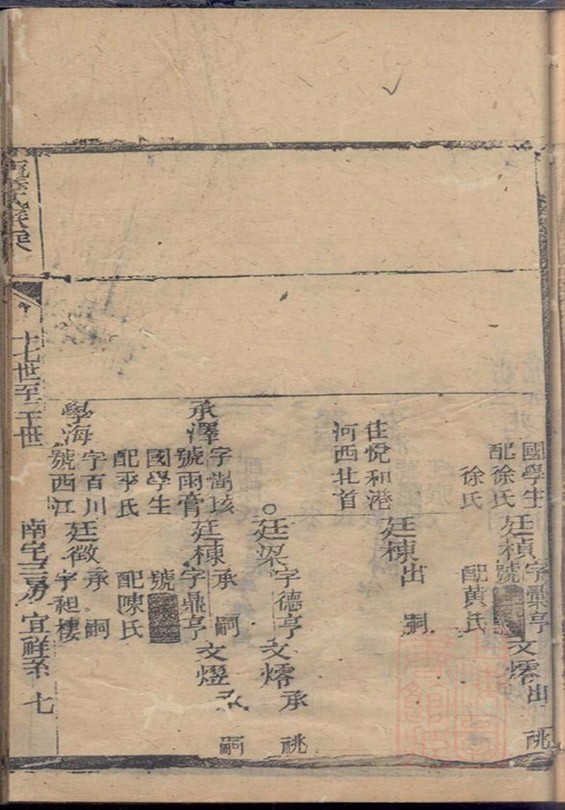 國學生
配徐氏
徐氏
廷楨
字鼎亨
號
配黃氏
文澪
出祧
住悅和港
河西北首
廷棟
出嗣
廷梁
字德亨
文澪
承祧
承澤
字澍垓
號雨膏
國學生
配李氏
廷棟
承嗣
字鼎亨
號
配陳氏
文熤
承嗣
學海
字百川
號西江
廷徵
承嗣
字祖樓
十七世至二十世
南宅三房宜祥系
七